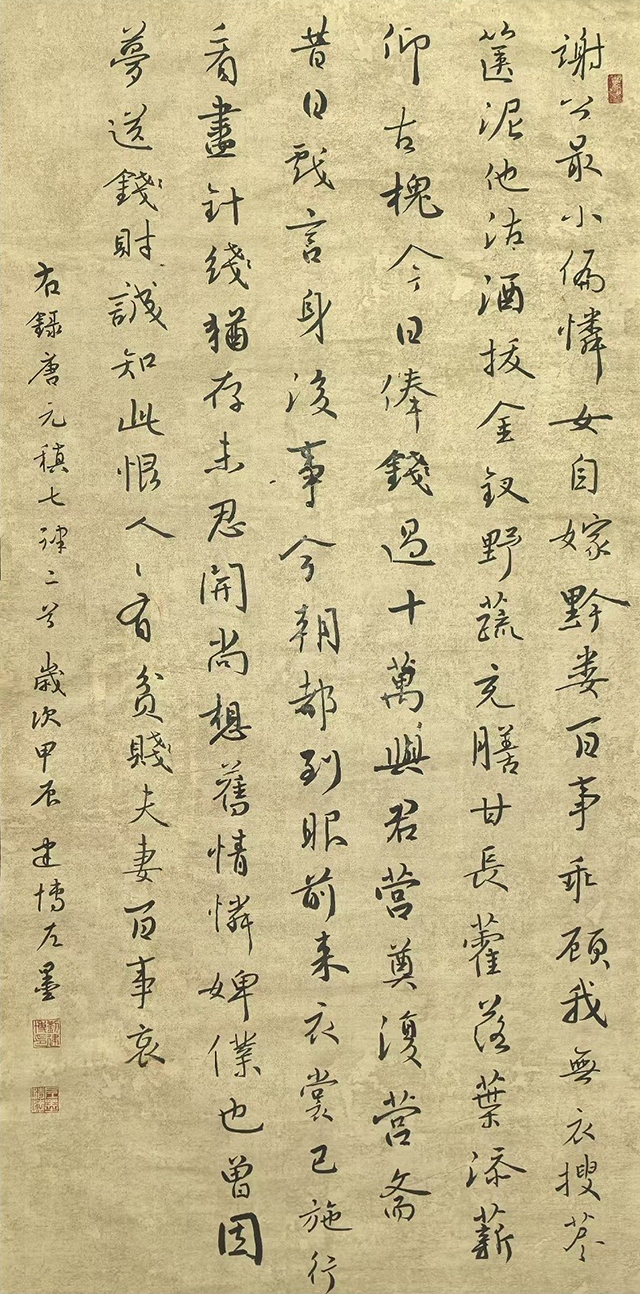 謝公最小偏憐女自嫁黔婁百事乖顧我無衣搜荩
篋泥他沽酒拔金釵野蔬充膳甘長藿落葉添薪
仰古槐今日俸錢過十萬與君營奠復營齋
昔日戲言身後事今朝都到眼前來衣裳已施行
看盡針綫猶存未忍開尚想舊情憐婢僕也曾因
夢送錢財誠知此恨人々有貧賤夫妻百事哀
右錄唐元稹七律二首歲次甲辰建博左墨